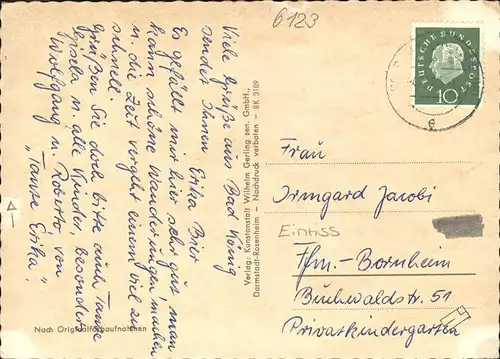 6123
Viele Grüße aus Bad König
sendet Ihnen Erika Bier
Es gefällt mir hier sehr gut, man
kann schöne Wanderungen machen
u. die Zeit vergeht einem viel zu
schnell.
Grüßen Sie doch bitte auch Tante
Gisela u. alle Kinder, besonders
Wolfgang u. Roberto von
„Tante Erika."
Verlag: Kunstanstalt Wilhelm Gerling sen. GmbH.,
Darmstadt-Rosenheim — Nachdruck verboten — BK 3189
Nach Originalfarbaufnahmen
DEUTSCHE BUNDESPOST
10
Frau
Irmgard Jacobi
Ffm.-Bornheim
Buchwaldstr. 51
Privatkindergarten